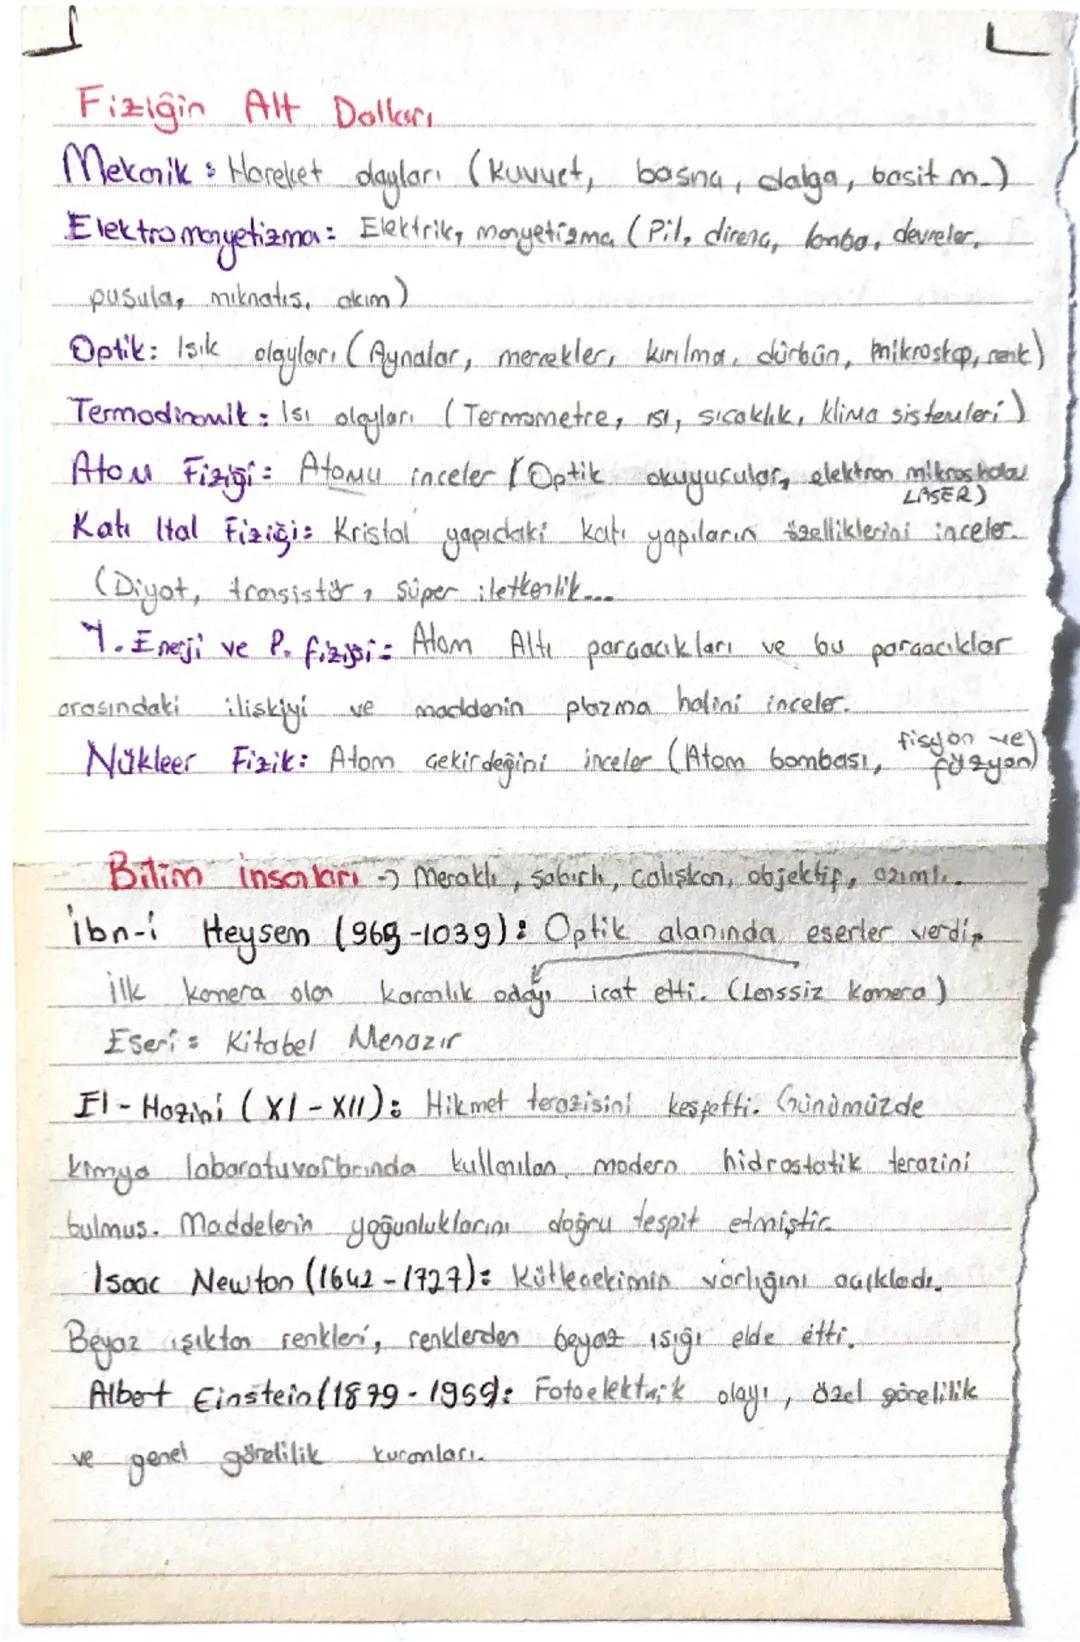 Fiziğin Alt Dalları
Mekanik: Hareket olayları (kuvvet, basınç, dalga, basit m.)
Elektromanyetizma: Elektrik, manyetizma (Pil, direnç, lamba, devreler,
pusula, mıknatıs, akım)
Optik: Işık olayları (Aynalar, mercekler, kırılma, dürbün, mikroskop, renk)
Termodinamik: Isı olayları (Termometre, ısı, sıcaklık, klima sistemleri)
Atom Fiziği: Atomu inceler (Optik okuyucular, elektron mikroskobu
LASER)
Katı Hal Fiziği: Kristal yapıdaki katı yapıların özelliklerini inceler.
(Diyot, transistör, süper iletkenlik...
Y. Enerji ve P. fiziği: Atom Altı parçacıkları ve bu parçacıklar
arasındaki ilişkiyi ve maddenin plazma halini inceler.
Nükleer Fizik: Atom çekirdeğini inceler (Atom bombası, fisyon ve
füzyon)
Bilim insanları → Meraklı, sabırlı, çalışkan, objektif, azimli..
İbn-i Heysem (965-1039): Optik alanında eserler verdi,
ilk kamera olan karanlık odayı icat etti. (Lenssiz kamera)
Eseri: Kitabel Menazır
El-Hazini (XI-XII): Hikmet terazisini keşfetti. Günümüzde
kimya laboratuvarlarında kullanılan modern hidrostatik terazini
bulmuş. Maddelerin yoğunluklarını doğru tespit etmiştir.
Isaac Newton (1642-1727): Kütleçekimin varlığını açıkladı.
Beyaz ışıktan renkleri, renklerden beyaz ışığı elde etti.
Albert Einstein (1879-1955): Fotoelektrik olayı, özel görelilik
ve genel görelilik kuramları.